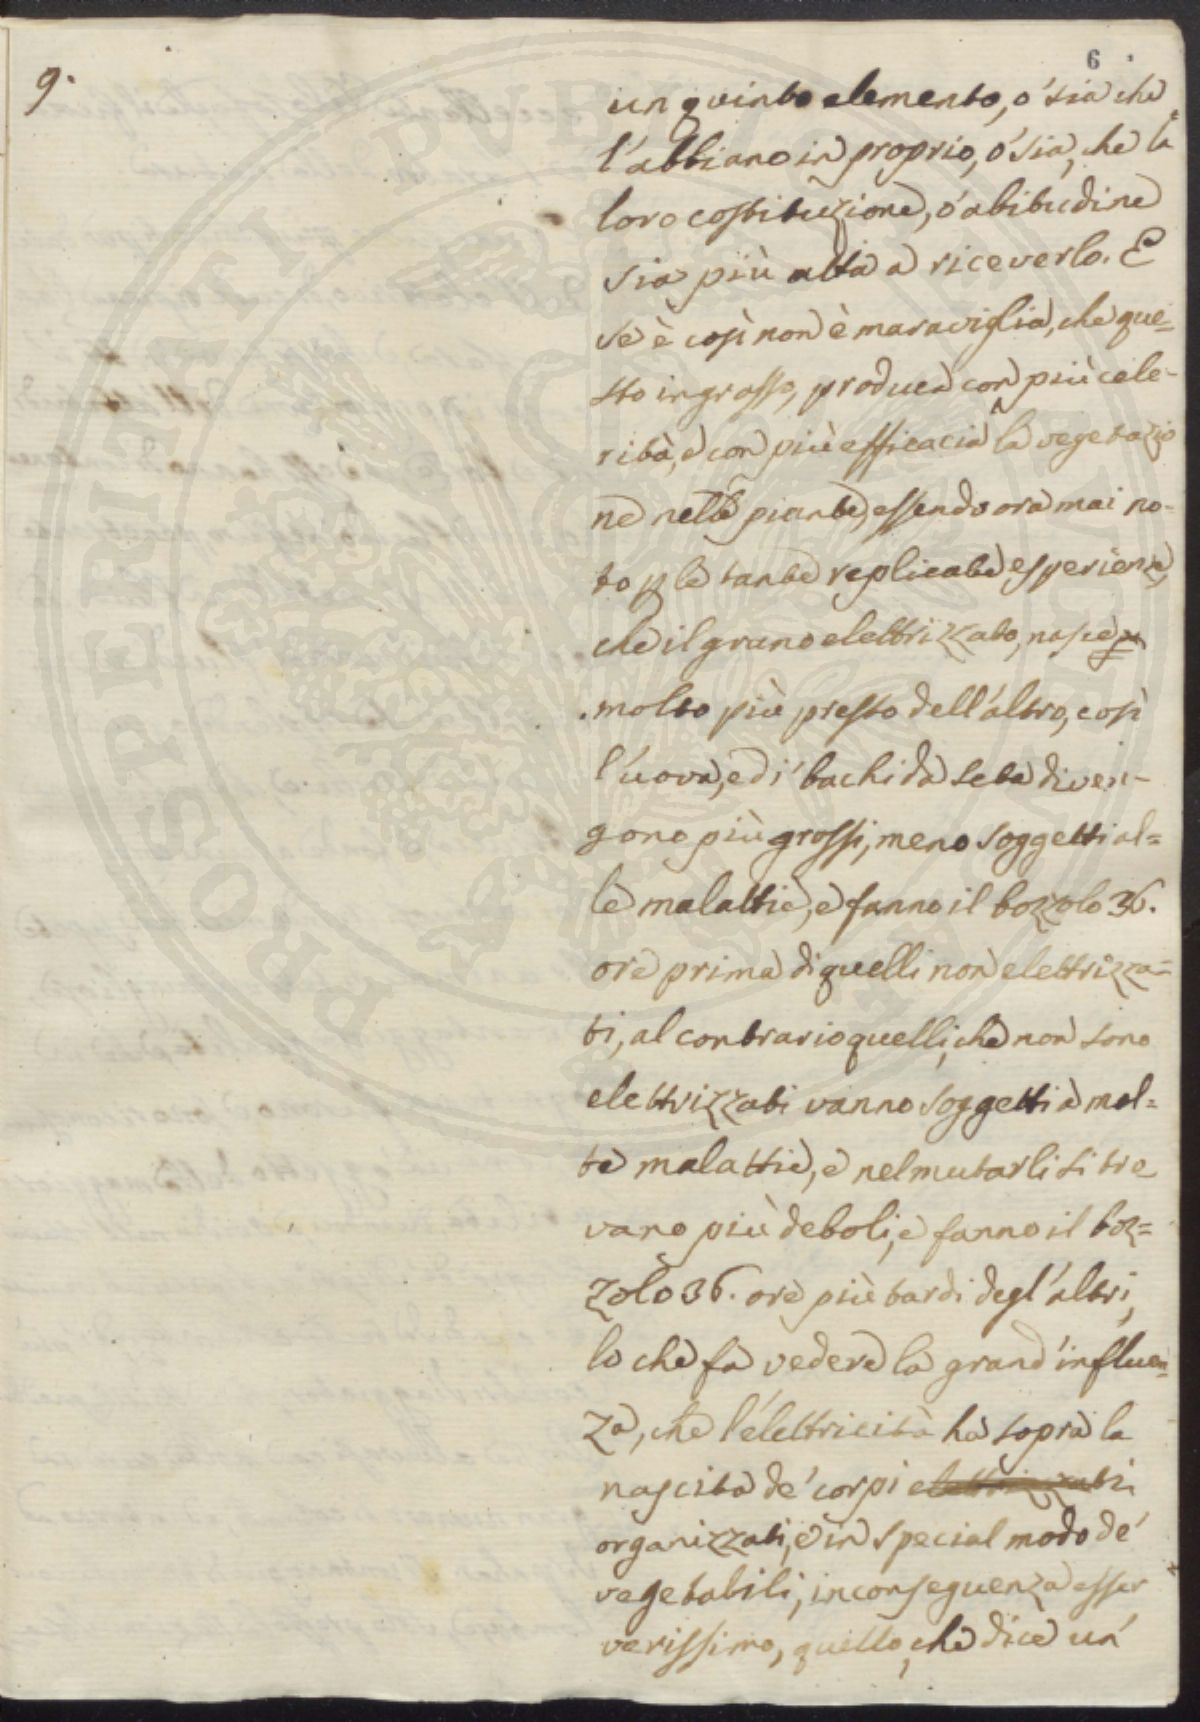 6
9.
un quinto elemento, o' sia che
l'abbiano in proprio, o' sia, che la
loro costituzione, o' abitudine
sia più atta a riceverlo. E
se è così non è maraviglia, che que=
sto ingrasso, produca con più cele-
rità, e con più efficacia la vegetazio
ne nelle piante, essendo ora mai no-
to p le tante replicate esperienze,
che il grano elettrizzato, nasce
molto più presto dell'altro, così
l'uova, ed i' bachi da seta diven-
gono più grossi, meno soggetti al=
le malattie, e fanno il bozzolo 36.
ore prima di quelli non elettrizza=
ti, al contrario quelli, che non sono
elettrizzati vanno soggetti a mol=
te malattie, e nel mutarli si tro
vano più deboli, e fanno il boz=
zolo 36. ore più tardi degl'altri,
lo che fa vedere la grand'influen=
za, che l'elettricità ha sopra la
nascita de' corpi elettrizzati
organizzati, e in special modo de'
vegetabili, in conseguenza esser
verissimo, quello, che dice un'
PROSPERITATI PVBLICAE AVGENDAE